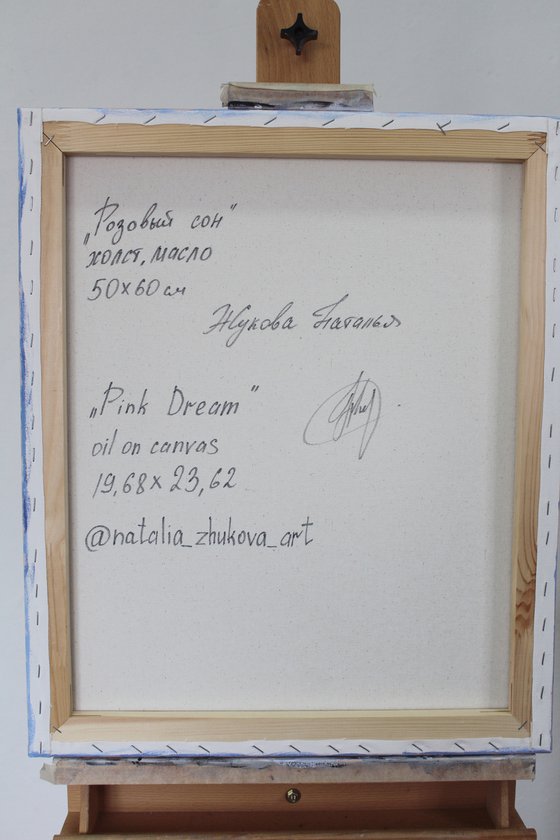 „Розовый сон"
холст, масло
50х60 см
Жукова Наталья
„Pink Dream"
oil on canvas
19,68x 23,62
@natalia_zhukova_art